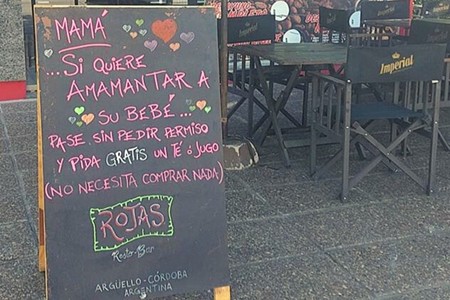 MAMÁ
...SI QUIERE
AMAMANTAR A
SU BEBÉ...
PASE SIN PEDIR PERMISO
Y PIDA GRATIS UN TÉ ó JUGO
(NO NECESITA COMPRAR NADA)
ROJAS
Resto-Bar
ARGÜELLO-CÓRDOBA
ARGENTINA
Imperial